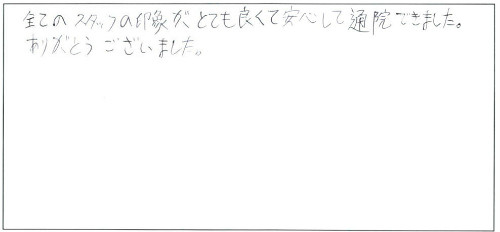 全てのスタッフの印象がとても良くて安心して通院できました。
ありがとうございました。